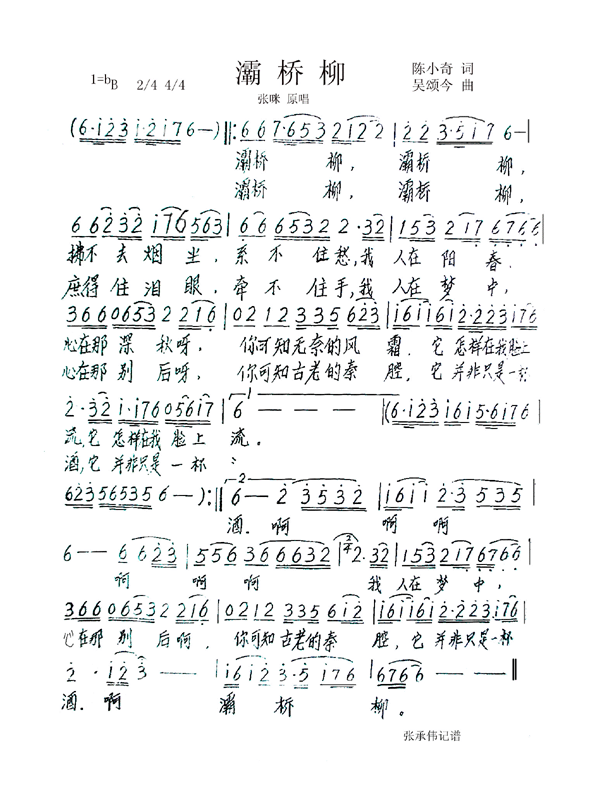 灞桥柳
1=bB 2/4 4/4
陈小奇 词
吴颂今 曲
张咪 原唱
(6·i23 i·2i76 6—)‖:667·653 2122|223·517 6—|
灞桥 柳， 灞桥 柳，
灞桥 柳， 灞桥 柳，
66232 i76 5653|666 532 2·32|153 217 6766|
拂不去烟尘，系不住愁，我人在阳春，
庶得住泪眼，牵不住手，我人在梦中，
366065322216|0212335623|i6i1i6i2·223i76|
心在那深秋呀， 你可知无奈的风霜，它怎样在我脸上
心在那别后呀， 你可知古老的秦腔，它并非只是一杯
2·32i·i76056i7|6 1 — — —|(6·i23i6i5·6i76|
流，它怎样在我脸上 流。
酒，它并非只是一杯 :
6235653 5 6—):‖2 6—23532|i6i12·3535|
酒. 啊 啊 啊
6——6623|5563 66632|2/4 2·32|153217 6766|
啊 啊 啊 我人在梦中，
366065322216|021233 5612|i6i1i6i2·223i76|
心在那别后啊， 你可知古老的秦腔，它并非只是一杯
2·i23|i6i23·5176|6766——‖
酒. 啊 灞桥 柳。
张承伟记谱